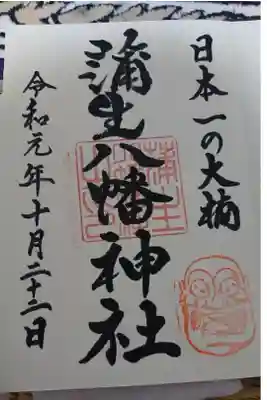 日本一の大楠
蒲生八幡神社
令和元年十月二十二日